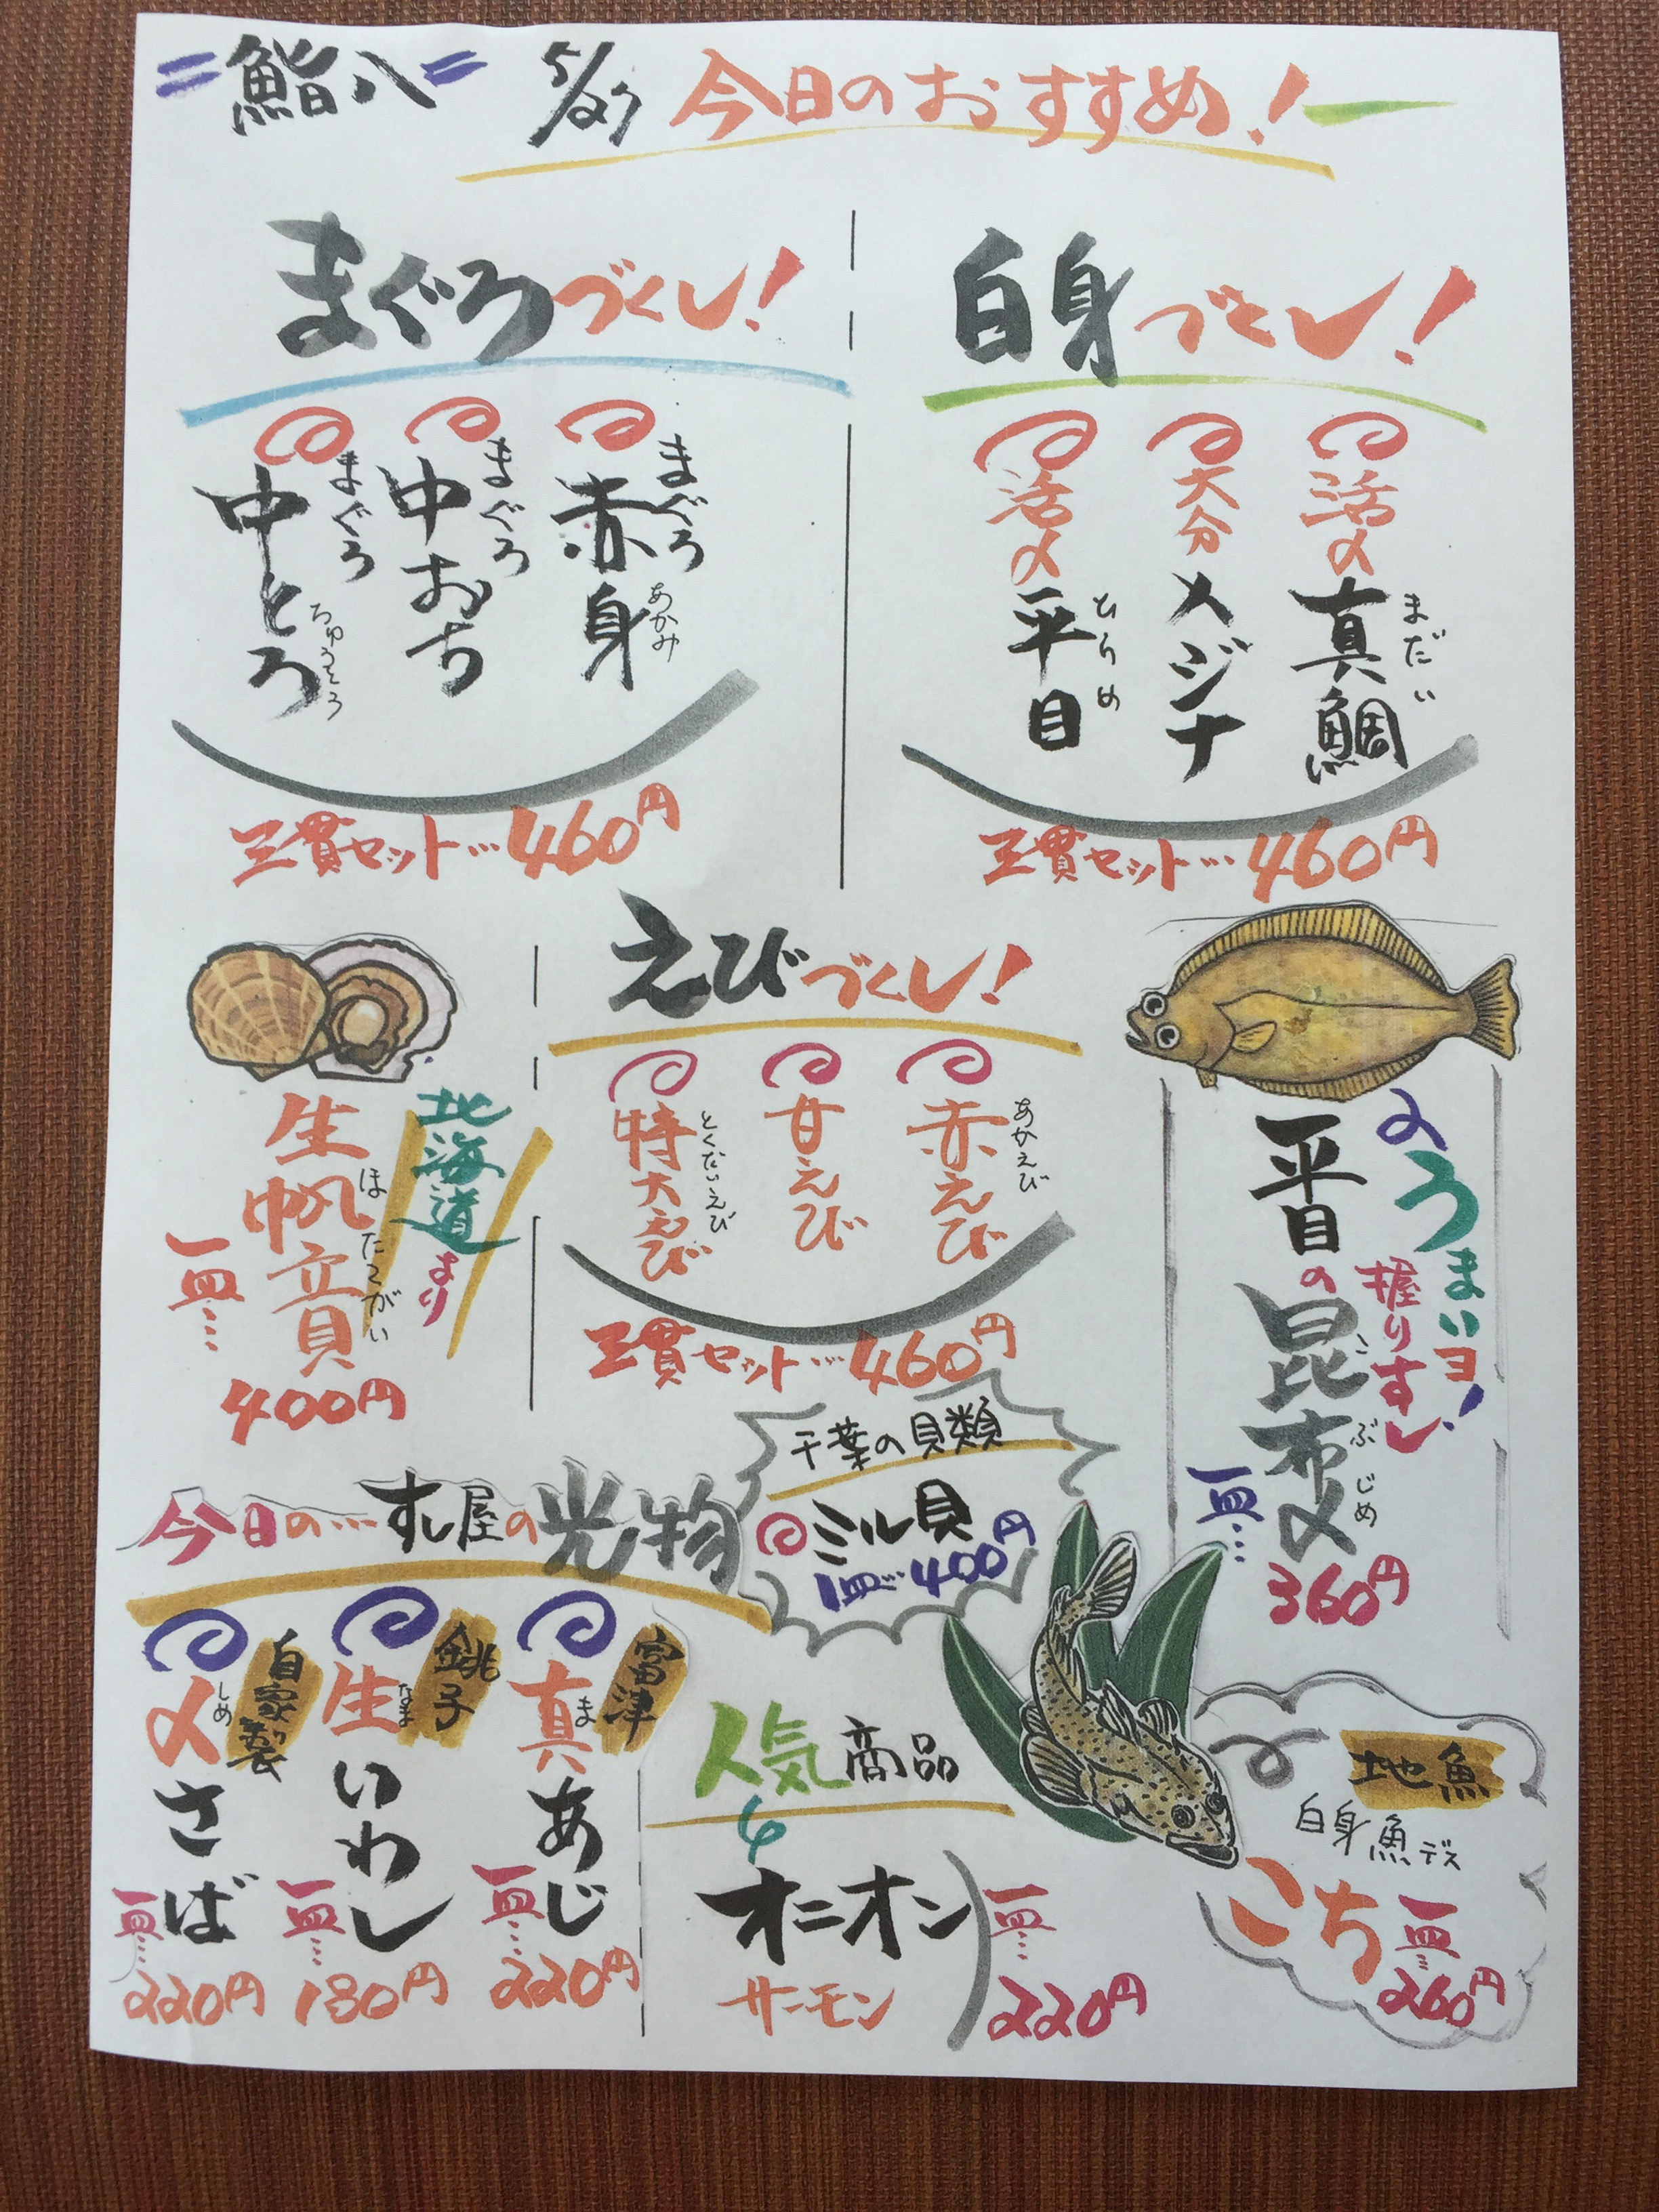 鮨八 5/27 今日のおすすめ!
まぐろづくし!
まぐろ 赤身 あかみ
まぐろ 中おち
まぐろ 中とろ ちゅうとろ
三貫セット…460円
白身づくし!
活〆 真鯛 まだい
大分 メジナ
活〆 平目 ひらめ
三貫セット…460円
北海道より
生帆立貝 ほたてがい
一皿…
400円
えびづくし!
赤えび あかえび
甘えび
特大えび とくだいえび
三貫セット…460円
うまいヨ!
握りすし
平目の昆布〆 こぶじめ
一皿…
360円
千葉の貝類
ミル貝
一皿…400円
今日の…すし屋の光物
富津
真あじ ま
一皿…
220円
銚子
生いわし なま
一皿…
180円
自家製
〆さば しめ
一皿…
220円
人気商品
オニオン
サーモン
一皿…
220円
地魚
白身魚デス
こち
一皿…
260円